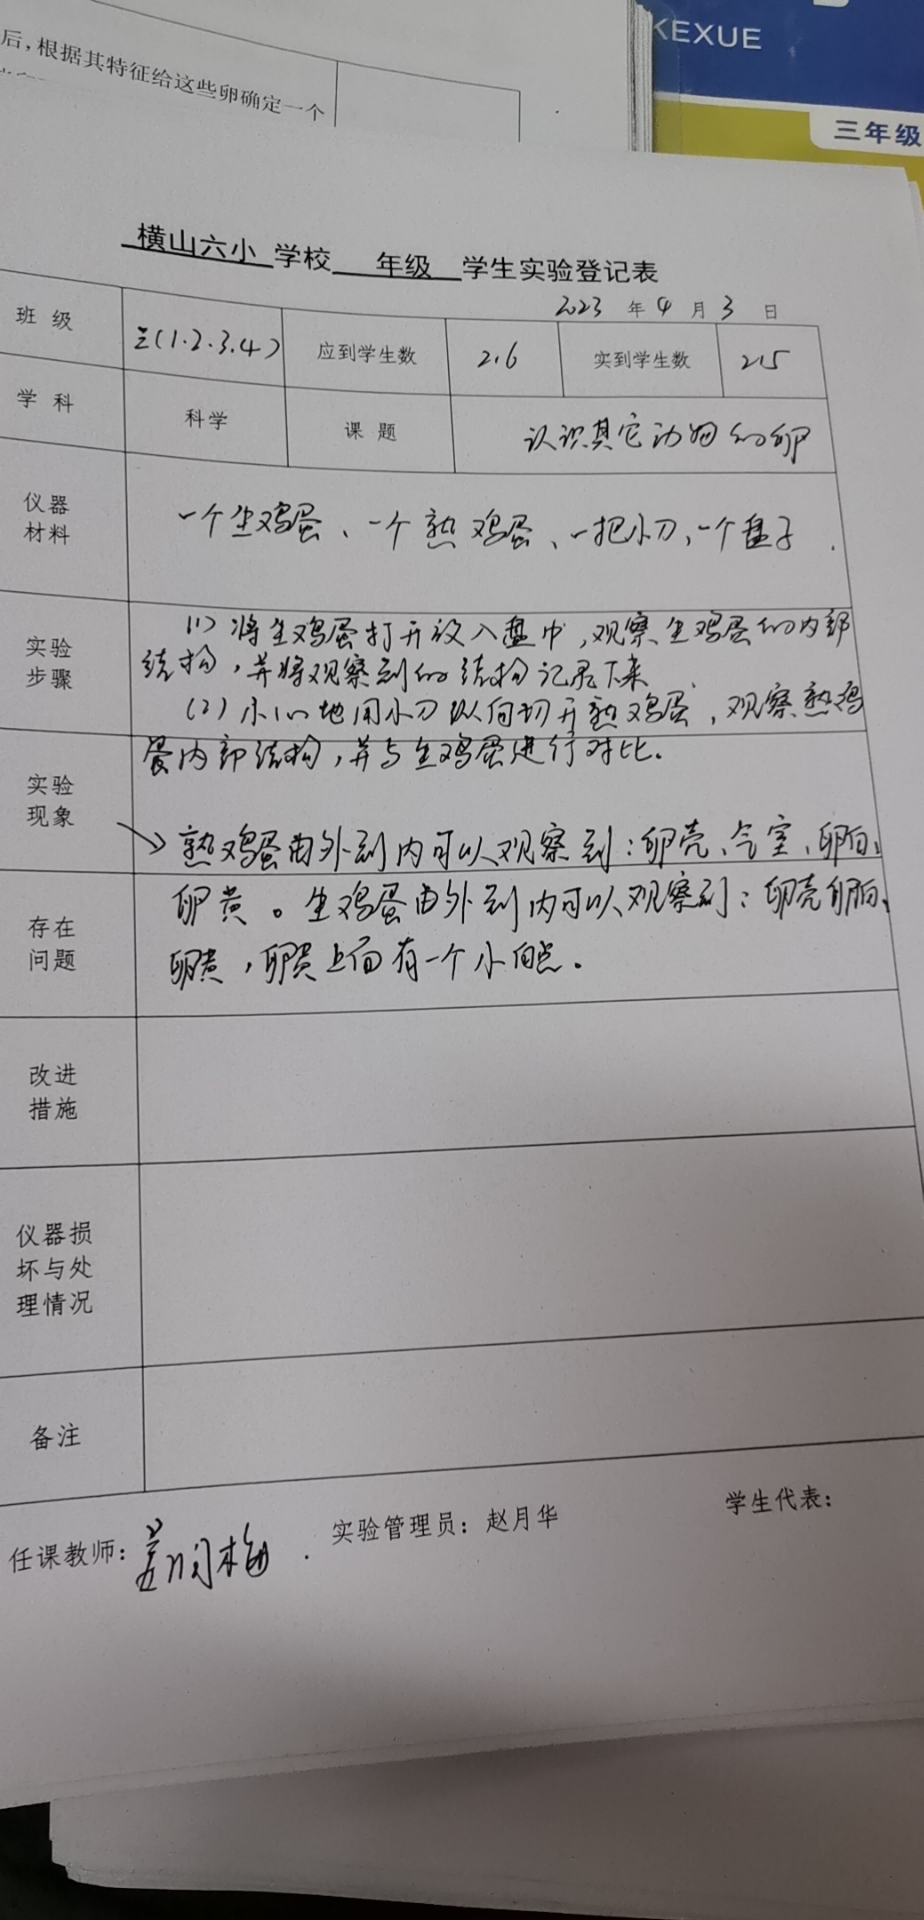 KEXUE
三年级
后，根据其特征给这些卵确定一个
横山六小 学校 年级 学生实验登记表
2023 年 4 月 3 日
班 级 三(1.2.3.4) 应到学生数 216 实到学生数 215
学 科 科学 课 题 认识其它动物的卵
仪器
材料
一个生鸡蛋、一个熟鸡蛋、一把小刀、一个盘子.
实验
步骤
(1) 将生鸡蛋打开放入盘中，观察生鸡蛋的内部
结构，并将观察到的结构记录下来
(2) 小心地用小刀纵向切开熟鸡蛋，观察熟鸡
蛋内部结构，并与生鸡蛋进行对比。
实验
现象
熟鸡蛋由外到内可以观察到：卵壳、气室、卵白、
卵黄。生鸡蛋由外到内可以观察到：卵壳、卵白、
卵黄，卵黄上面有一个小白点。
存在
问题
改进
措施
仪器损
坏与处
理情况
备注
任课教师： 实验管理员：赵月华 学生代表：